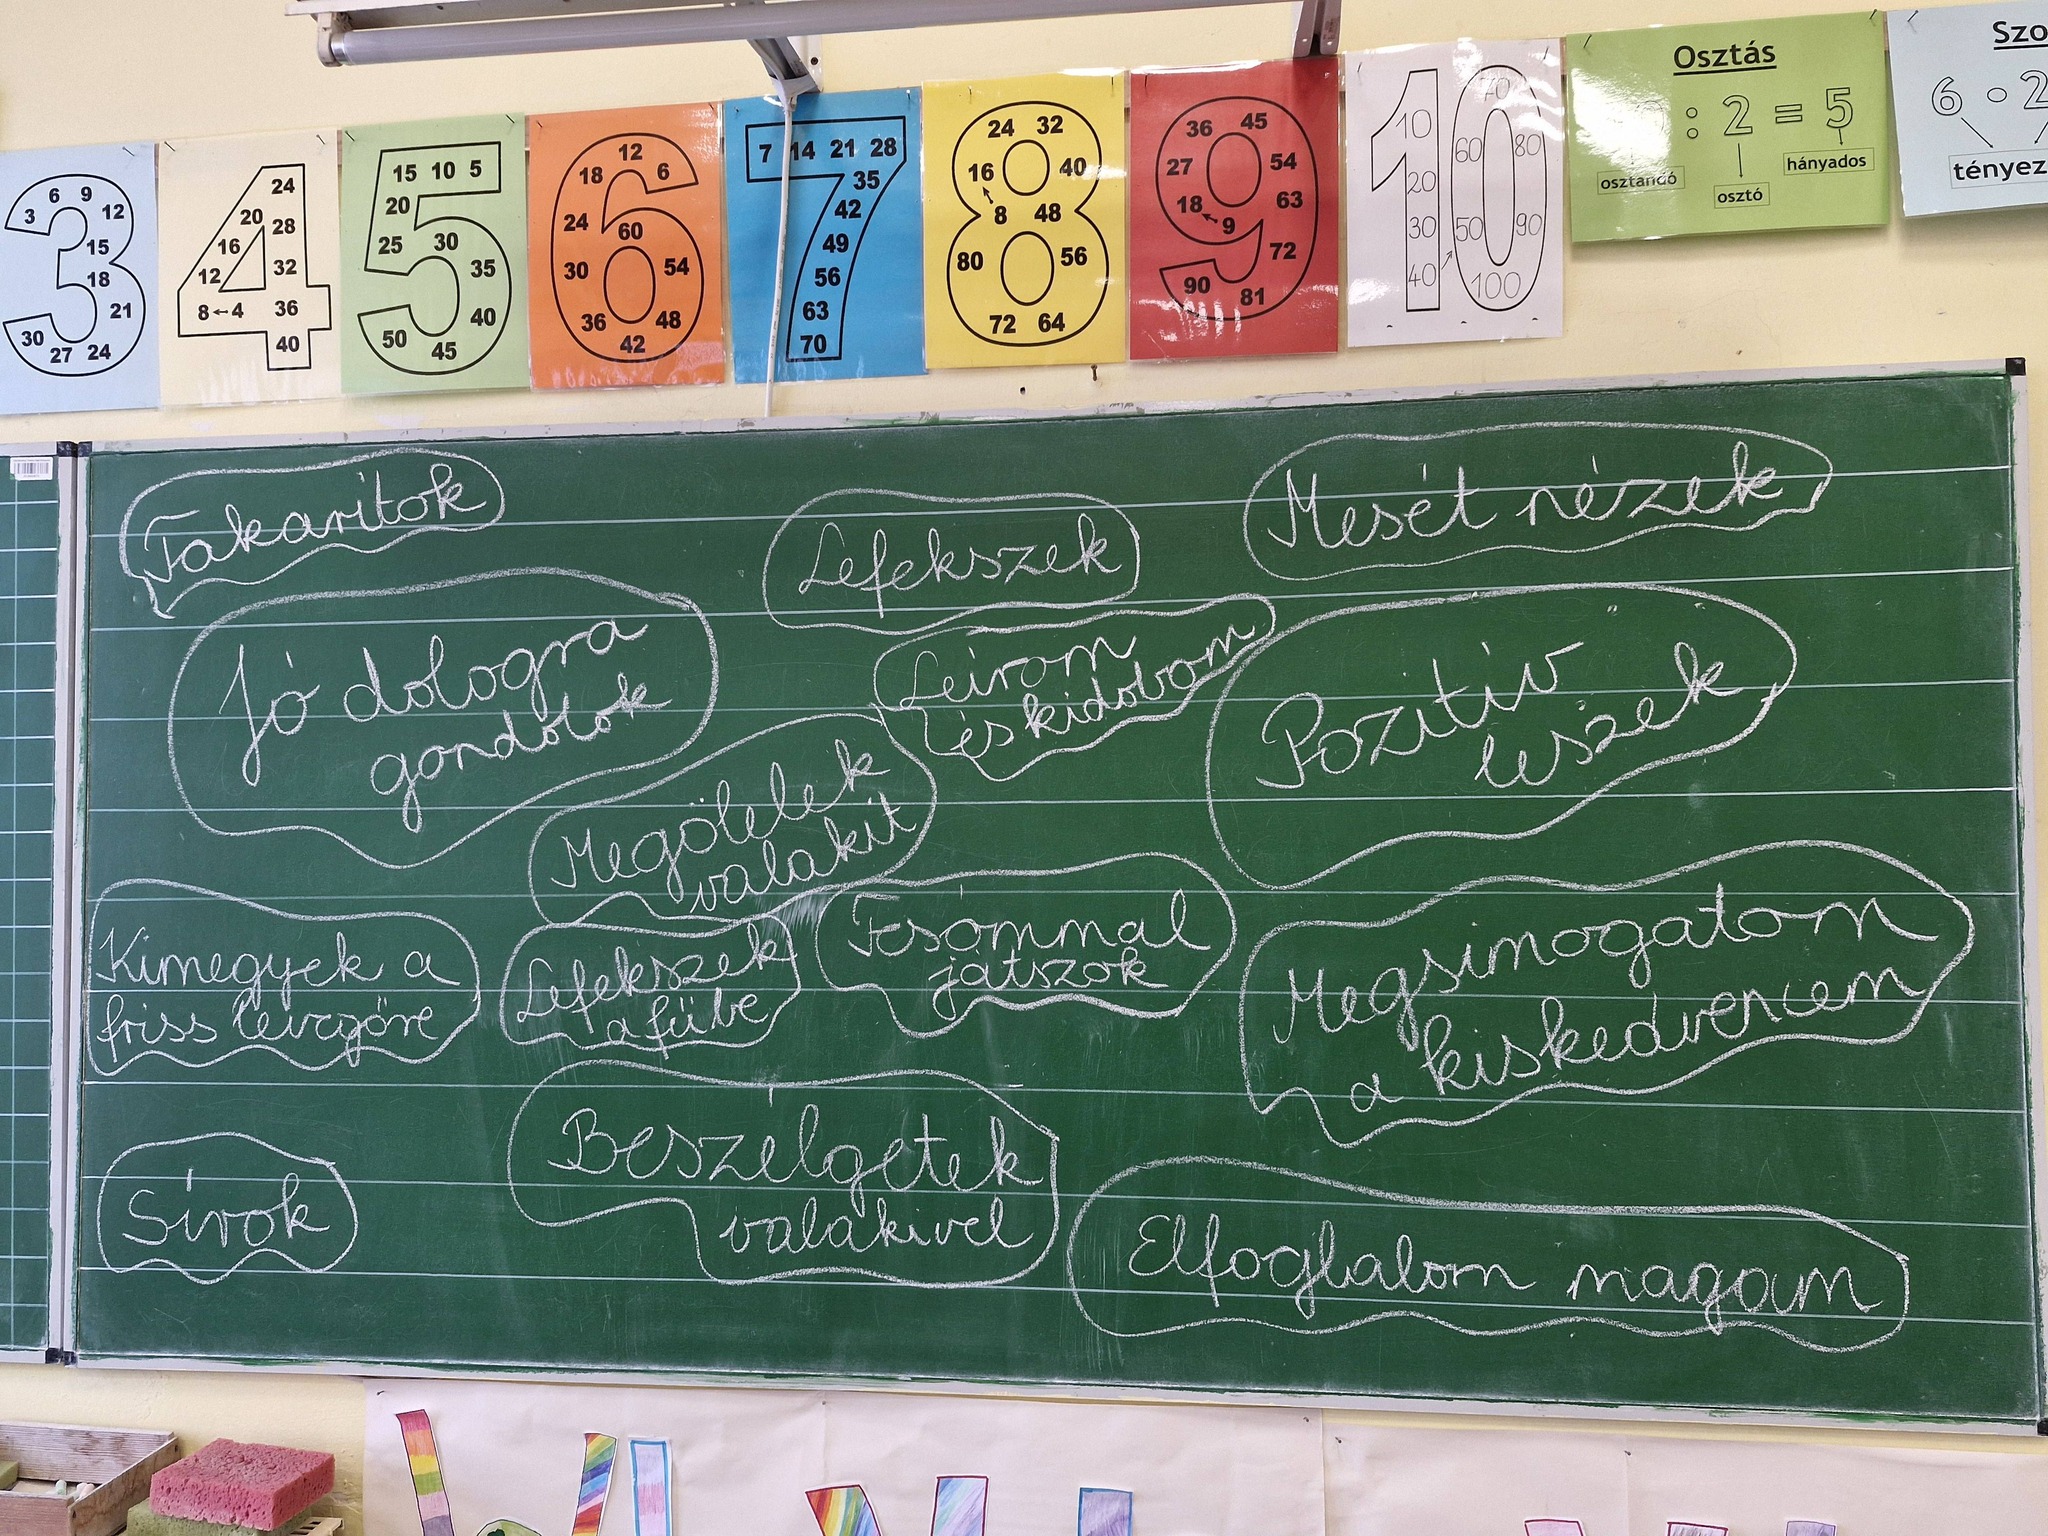 3 6 9 12 15 18 21 24 27 30
24 20 28 16 12 32 8←4 36 40
15 10 5 20 25 30 35 40 50 45
12 18 6 24 60 30 54 36 48 42
7 14 21 28 35 42 49 56 63 70
24 32 16 40 8 48 80 56 72 64
36 45 27 54 18 9 63 72 90 81
10 20 30 40 50 60 70 80 90 100
Osztás
: 2 = 5
osztandó
osztó
hányados
6 · 2
tényez
Takarítok
Lefekszek
Mesét nézek
Jó dologra
gondolok
Leírom
és kidobom
Pozitív
leszek
Megölelek
valakit
Kimegyek a
friss levegőre
Lefekszek
a fűbe
Tesómmal
játszok
Megsimogatom
a kiskedvencem
Sírok
Beszélgetek
valakivel
Elfoglalom magam